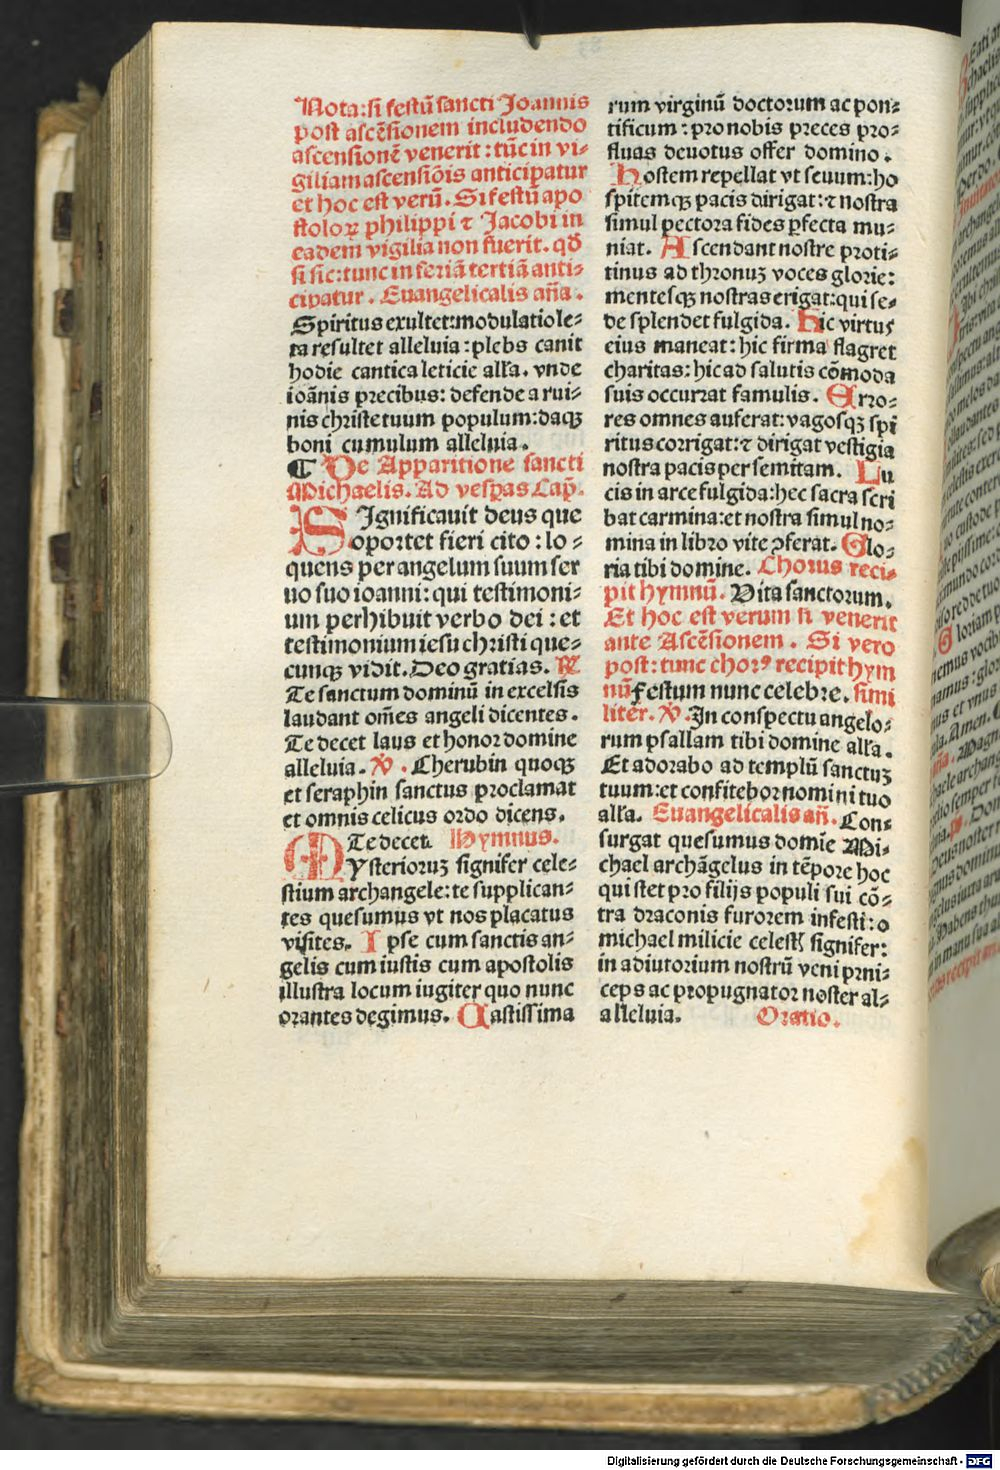 Nota: si festū sancti Joannis
post ascēsionem includendo
ascensionē venerit: tūc in vi⸗
giliam ascensiōis anticipatur
et hoc est verū. Si festū apo
stoloꝝ philippi ⁊ Jacobi in
eadem vigilia non fuerit. qđ
si sic: tunc in feriā tertiā anti⸗
cipatur. Euangelicalis aña.
Spiritus exultet: modulatio le⸗
ta resultet alleluia: plebs canit
hodie cantica leticie alľa. vnde
ioānis precibus: defende a rui⸗
nis christe tuum populum: dаqꝫ
boni cumulum alleluia.
¶ De Apparitione sancti
Michaelis. Ad vesꝑas Cap̄.
SIgnificauit deus que
oportet fieri cito: lo⸗
quens per angelum suum ser
uo suo ioanni: qui testimoni⸗
um perhibuit verbo dei: et
testimonium iesu christi que⸗
cunqꝫ vidit. Deo gratias. ℟
Te sanctum dominū in excelsis
laudant om̄es angeli dicentes.
Te decet laus et honor domine
alleluia. ℣. Cherubin quoqꝫ
et seraphin sanctus proclamat
et omnis celicus ordo dicens.
Te decet. Hymnus.
MYsterioruꝫ signifer cele⸗
stium archangele: te supplican⸗
tes quesumus vt nos placatus
visites. Ipse cum sanctis an⸗
gelis cum iustis cum apostolis
illustra locum iugiter quo nunc
orantes degimus. Castissima
rum virginū doctorum ac pon⸗
tificum: pro nobis preces pro⸗
fluas deuotus offer domino.
Hostem repellat vt seuum: ho
spitemqꝫ pacis dirigat: ⁊ nostra
simul pectora fides ꝑfecta mu⸗
niat. Ascendant nostre proti⸗
tinus ad thronuꝫ voces glorie:
mentesqꝫ nostras erigat: qui se⸗
de splendet fulgida. Hic virtus
eius maneat: hic firma flagret
charitas: hic ad salutis cōmoda
suis occurrat famulis. Erro⸗
res omnes auferat: vagosqꝫ spi
ritus corrigat: ⁊ dirigat vestigia
nostra pacis per semitam. Lu
cis in arce fulgida: hec sacra scri
bat carmina: et nostra simul no⸗
mina in libro vite ꝯferat. Glo⸗
ria tibi domine. Chorus reci⸗
pit hymnū. Vita sanctorum.
Et hoc est verum si venerit
ante Ascēsionem. Si vero
post: tunc chorꝰ recipit hym
nū Festum nunc celebre. simi
liter. ℣. In conspectu angelo⸗
rum psallam tibi domine alľa.
Et adorabo ad templū sanctuꝫ
tuum: et confitebor nomini tuo
alľa. Euangelicalis añ. Con⸗
surgat quesumus domīe Mi⸗
chael archāgelus in tēpore hoc
qui stet pro filijs populi sui cō⸗
tra draconis furorem infesti: o
michael milicie celestꝭ signifer:
in adiutorium nostrū veni prni⸗
ceps ac propugnator noster al⸗
alleluia. Oratio.
Digitalisierung gefördert durch die Deutsche Forschungsgemeinschaft - DFG